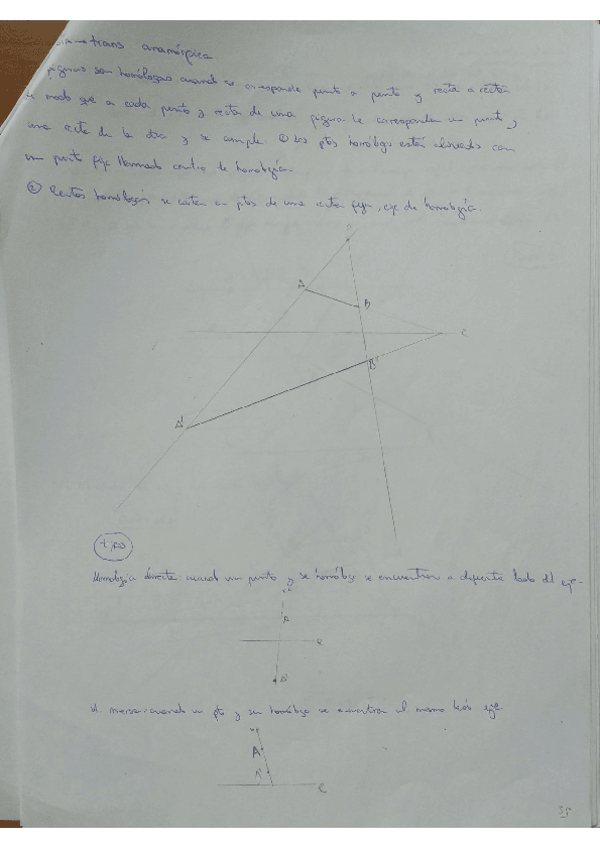 → trans anamórfica
figuras son homólogas cuando se corresponde punto a punto y recta a recta
modo que a cada punto y recta de una figura le corresponden un punto y
una recta de la otra y se cumple: ① Los ptos homólogos están alineados con
un punto fijo llamado centro de homología.
② Rectas homólogas se cortan en ptos de una recta fija, eje de homología.
A
B
e
B'
A'
tipos
Homología directa cuando un punto y su homólogo se encuentran a diferente lado del eje.
A
e
A'
H. inversa: cuando un pto y su homólogo se encuentran al mismo lado eje.
A
A'
e